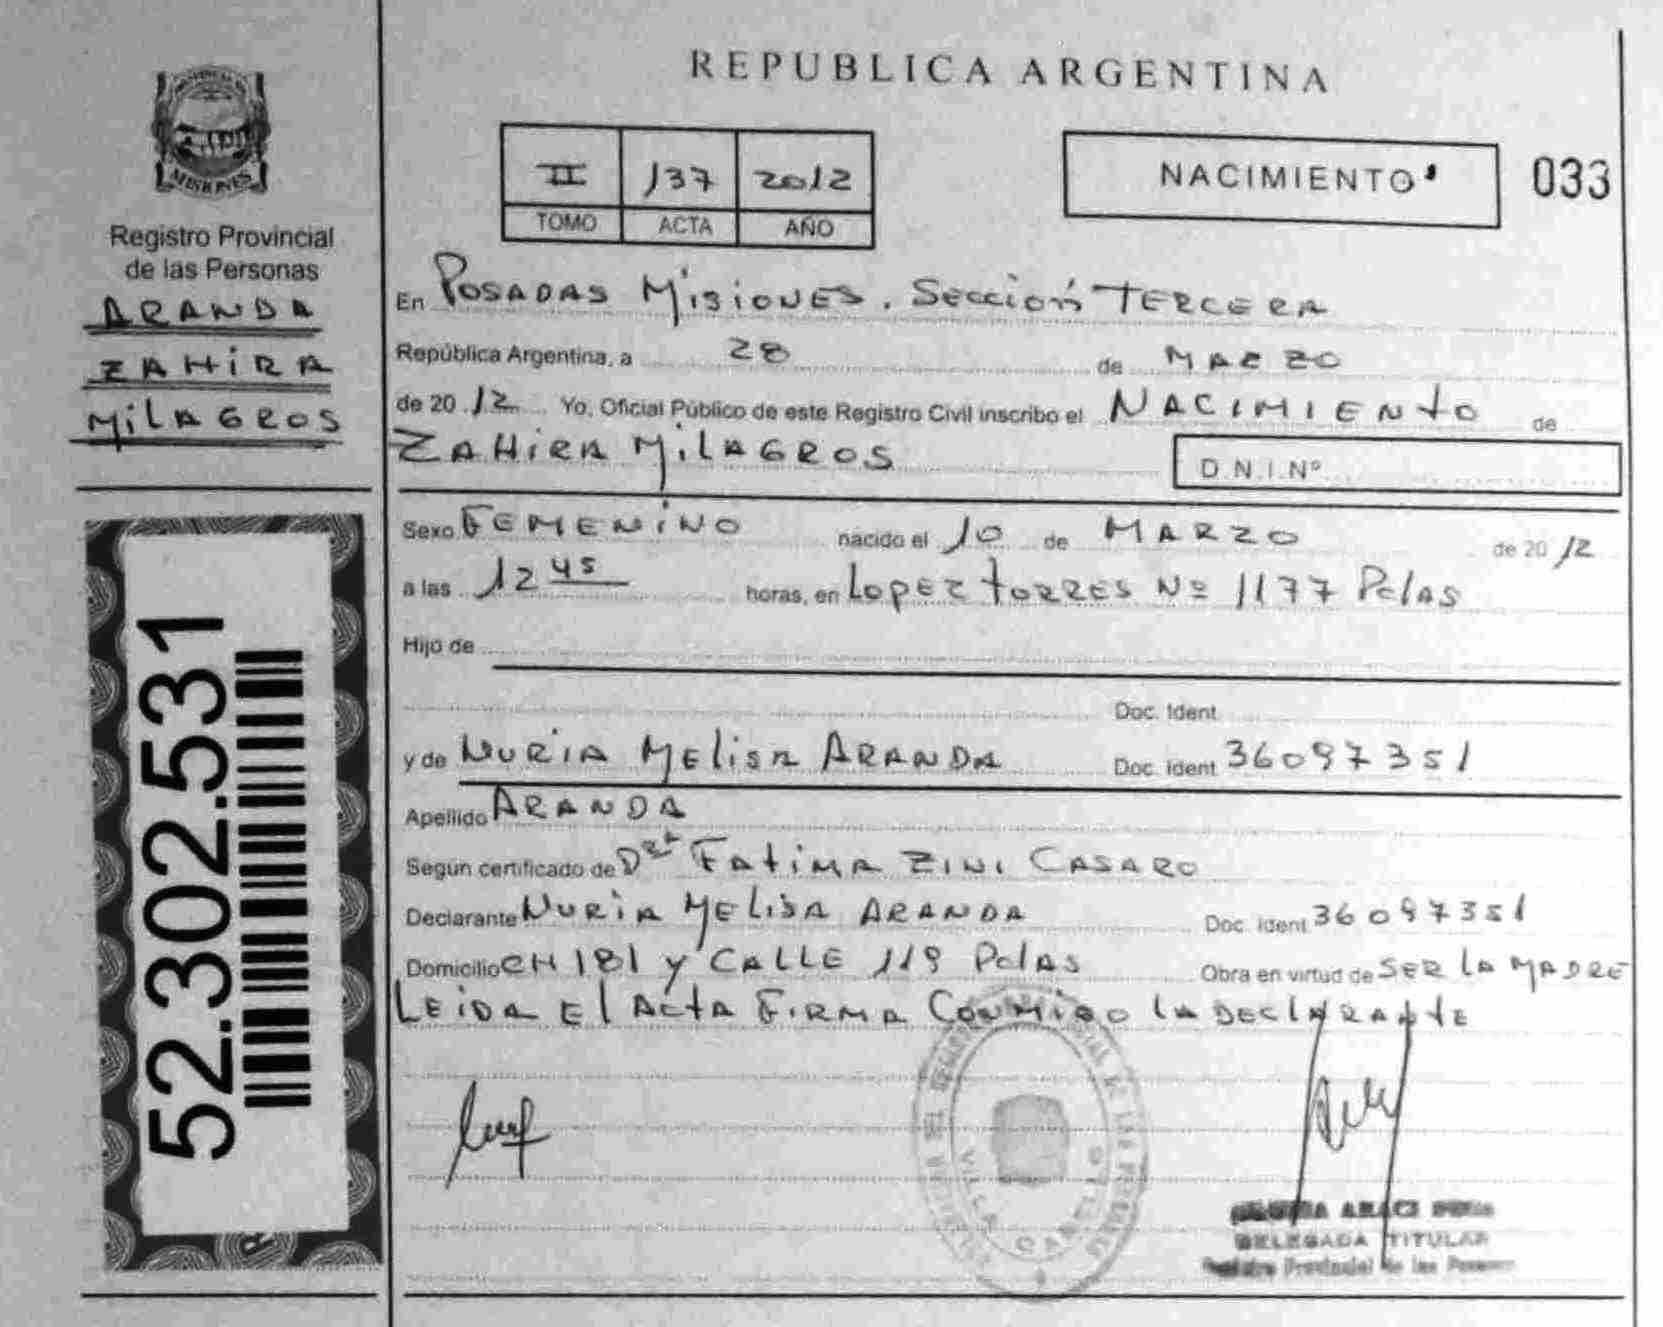 REPUBLICA ARGENTINA
MISIONES
Registro Provincial
de las Personas
ARANDA
ZAHIRA
MILAGROS
52.302.531
II 137 2012
TOMO ACTA AÑO
NACIMIENTO 033
En POSADAS MISIONES. SECCIÓN TERCERA
República Argentina, a 28 de MARZO
de 2012 Yo, Oficial Público de este Registro Civil inscribo el NACIMIENTO de
ZAHIRA MILAGROS D.N.I.Nº
Sexo FEMENINO nacido el 10 de MARZO de 2012
a las 12 45 horas, en LOPEZ TORRES Nº 1177 Pdas
Hijo de
Doc. Ident.
y de NURIA MELISA ARANDA Doc. Ident. 36097351
Apellido ARANDA
Según certificado de Dra FATIMA ZINI CASARO
Declarante NURIA MELISA ARANDA Doc. Ident 36097351
Domicilio CH 181 y CALLE 119 PdAS Obra en virtud de SER LA MADRE
LEIDA El ACTA FIRMA CONMIGO LA DECLARANTE
VILLA CABELLO
DELEGADA TITULAR
Registro Provincial de las Personas